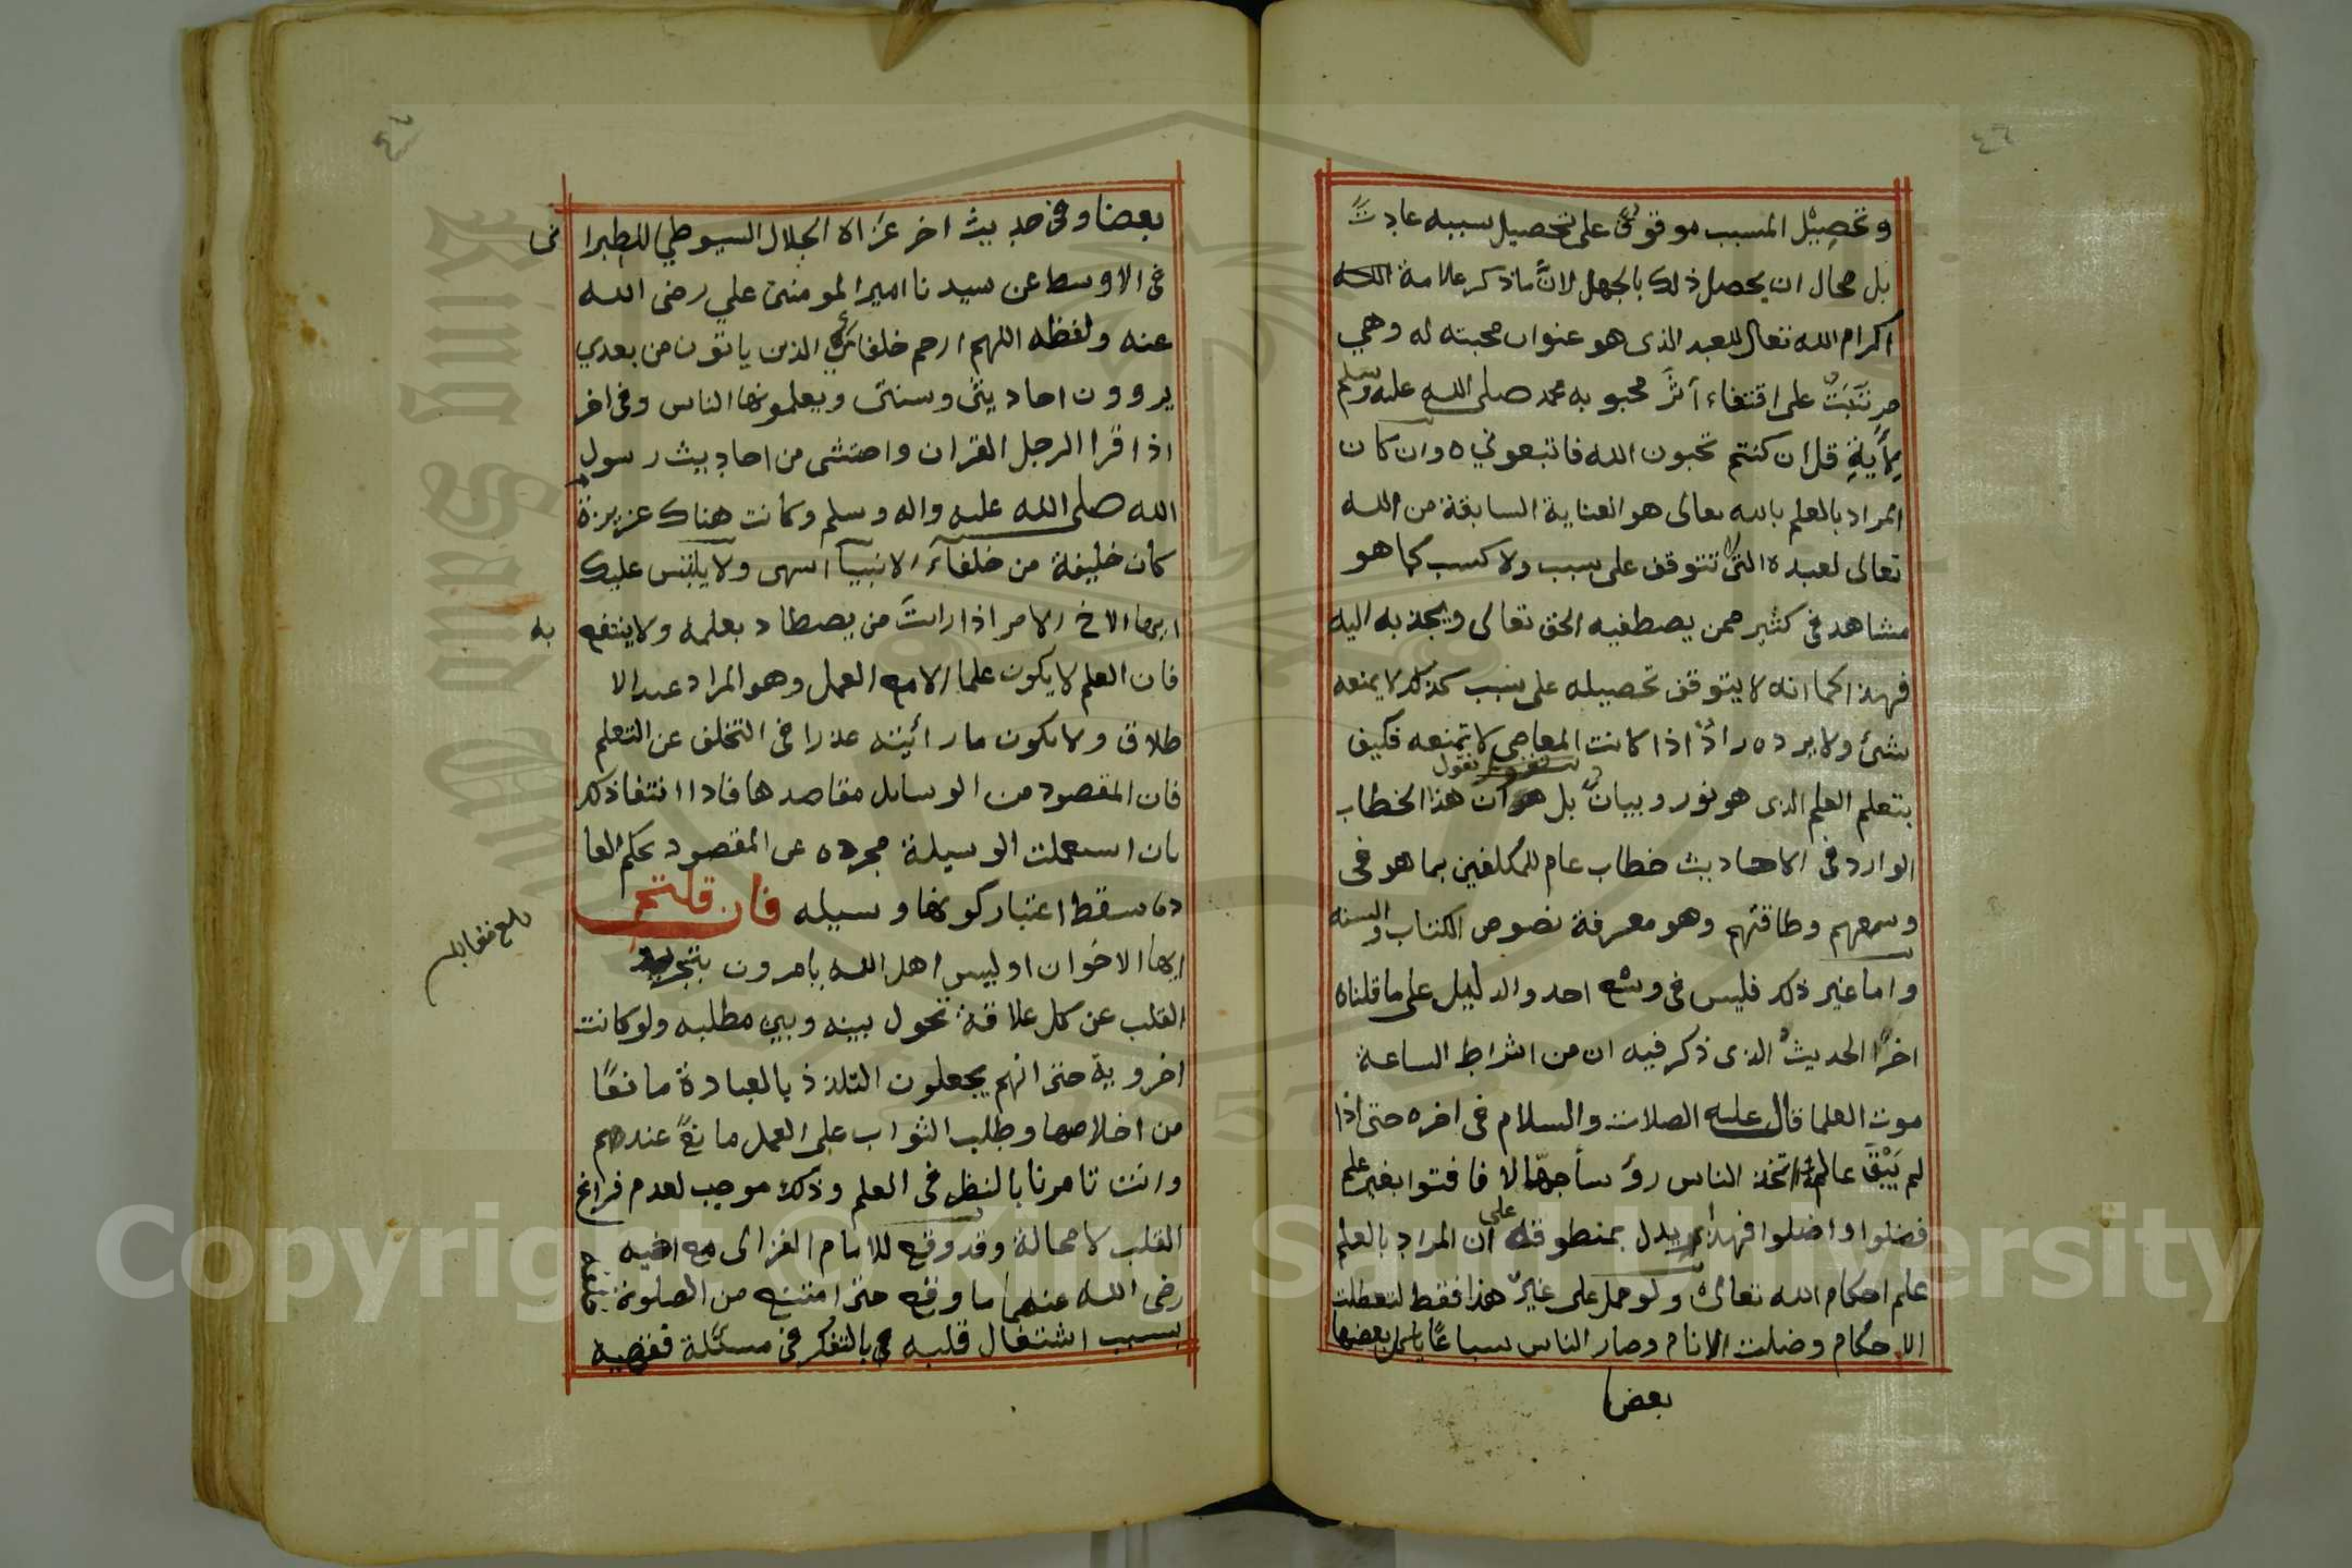 ٤٦
وتحصيل المسبب موقوف على تحصيل سببه عادت
بل محال ان يحصل ذلك بالجهل لانَّ ما ذكر علامة
اكرام الله تعالى للعبد الذى هو عنوان محبته له وهي
مرتبَتٌ على اقتفاء أثر محبوبه محمد صلى الله عليه وسلم
بأيةِ قل ان كنتم تحبون الله فاتبعوني ه وان كان
المراد بالعلم بالله تعالى هو العناية السابقة من الله
تعالى لعبده التى لا تتوقف على سبب ولا كسب كما هو
مشاهد فى كثير ممن يصطفيه الحق تعالى ويجذبه اليه
فهذا كما انه لا يتوقف تحصيله على سبب كذلك لا يمنعه
شئ ولا يرده رادٌ اذا كانت المعاصى لا تمنعه فكيف
بتعلم العلم الذى هو نور وبيانٌ بل نقول ان هذا الخطاب
الوارد فى الاحاديث خطاب عام للمكلفين بما هو فى
وسعهم وطاقتهم وهو معرفة نصوص الكتاب والسنه
واما غير ذلك فليس فى وسْع احد والدليل على ما قلناه
اخرًا الحديث الذى ذكر فيه ان من اشراط الساعة
موت العلما قال عليه الصلات والسلام فى اخره حتى اذا
لم يَبْقَ عالم اتخذ الناس رؤسأ جهّالا فافتوا بغير علم
فضلوا واضلوا فهذا يدل بمنطوقه على ان المراد بالعلم
علم احكام الله تعالى ولو حمل على غير هذا فقط لتعطلت
الاحكام وضلت الانام وصار الناس سباعًا ياكل بعضها
بعضا
٤٧
بعضا وفى حديث اخر عزاه الجلال السيوطي للطبرا نى
فى الاوسط عن سيدنا امير المومنين علي رضى الله
عنه ولفظه اللهم ارحم خلفائى الذين ياتون من بعدي
يروون احاديثى وسنتى ويعلمونها الناس وفى اخر
اذا قرا الرجل القران واحتشى من احاديث رسول
الله صلى الله عليه واله وسلم وكانت هناك عزيزة
كان خليفة من خلفآء الانبيآ انتهى ولا يلتبس عليك
ايها الاخ الامر اذا رايتَ من يصطاد بعلمه ولا ينتفع به
فان العلم لا يكون علما الا مع العمل وهو المراد عند الا
طلاق ولا يكون ما رأئيته عذرا فى التخلف عن التعلم
فان المقصود من الوسايل مقاصدها فاذا انتفا ذلك
بان استعملت الوسيلة مجرده عن المقصود بحكم العا
دة سقط اعتبار كونها وسيله فان قلتم
ايها الاخوان اوليس اهل الله يامرون بتجريد
القلب عن كل علاقة تحول بينه وبين مطلبه ولو كانت
اخروية حتى انهم يجعلون التلذذ بالعبادة مانعًا
من اخلاصها وطلب الثواب على العمل مانعً عندهم
وانت تامرنا بالنظر فى العلم وذلك موجب لعدم فراغ
القلب لا محالة وقد وقع للامام الغزالى مع اخيه
رضى الله عنهما ما وقع حتى امتنع من الصلوة
بسبب اشتغال قلبه بالتفكر فى مسئلة فقهية
بلغ مقابله
Copyright © King Saud University
1957